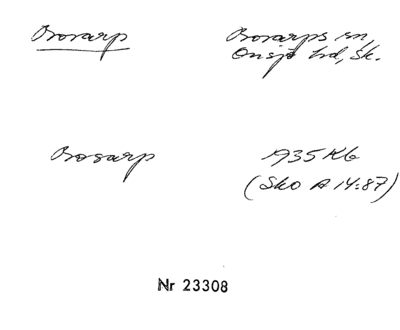 Bosarp
Bosarps sn,
Onsjö hd, Sk.
Bosarp
1935 Kb
(Sko A 14:87)
Nr 23308